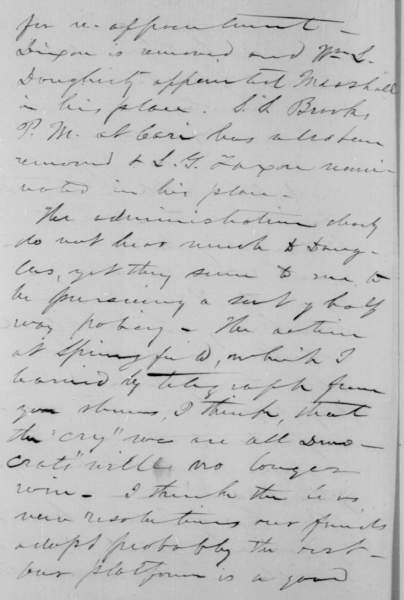 for re-appointment –
Dixon is removed and Wm L.
Dougherty appointed Marshall
in his place. S. S. Brooks
P. M. at Cairo has also been
removed & L. G. Faxon nomi-
nated in his place –
The administration clearly
do not bear much to Doug-
las, yet they seem to me to
be pursuing a sort of half
way policy – The action
at Springfield, which I
learned by telegraph from
you shows, I think, that
the "cry" we are all Demo-
crats" will no longer
win – I think the
resolutions our friends
adopt probably the best –
our platform is a good